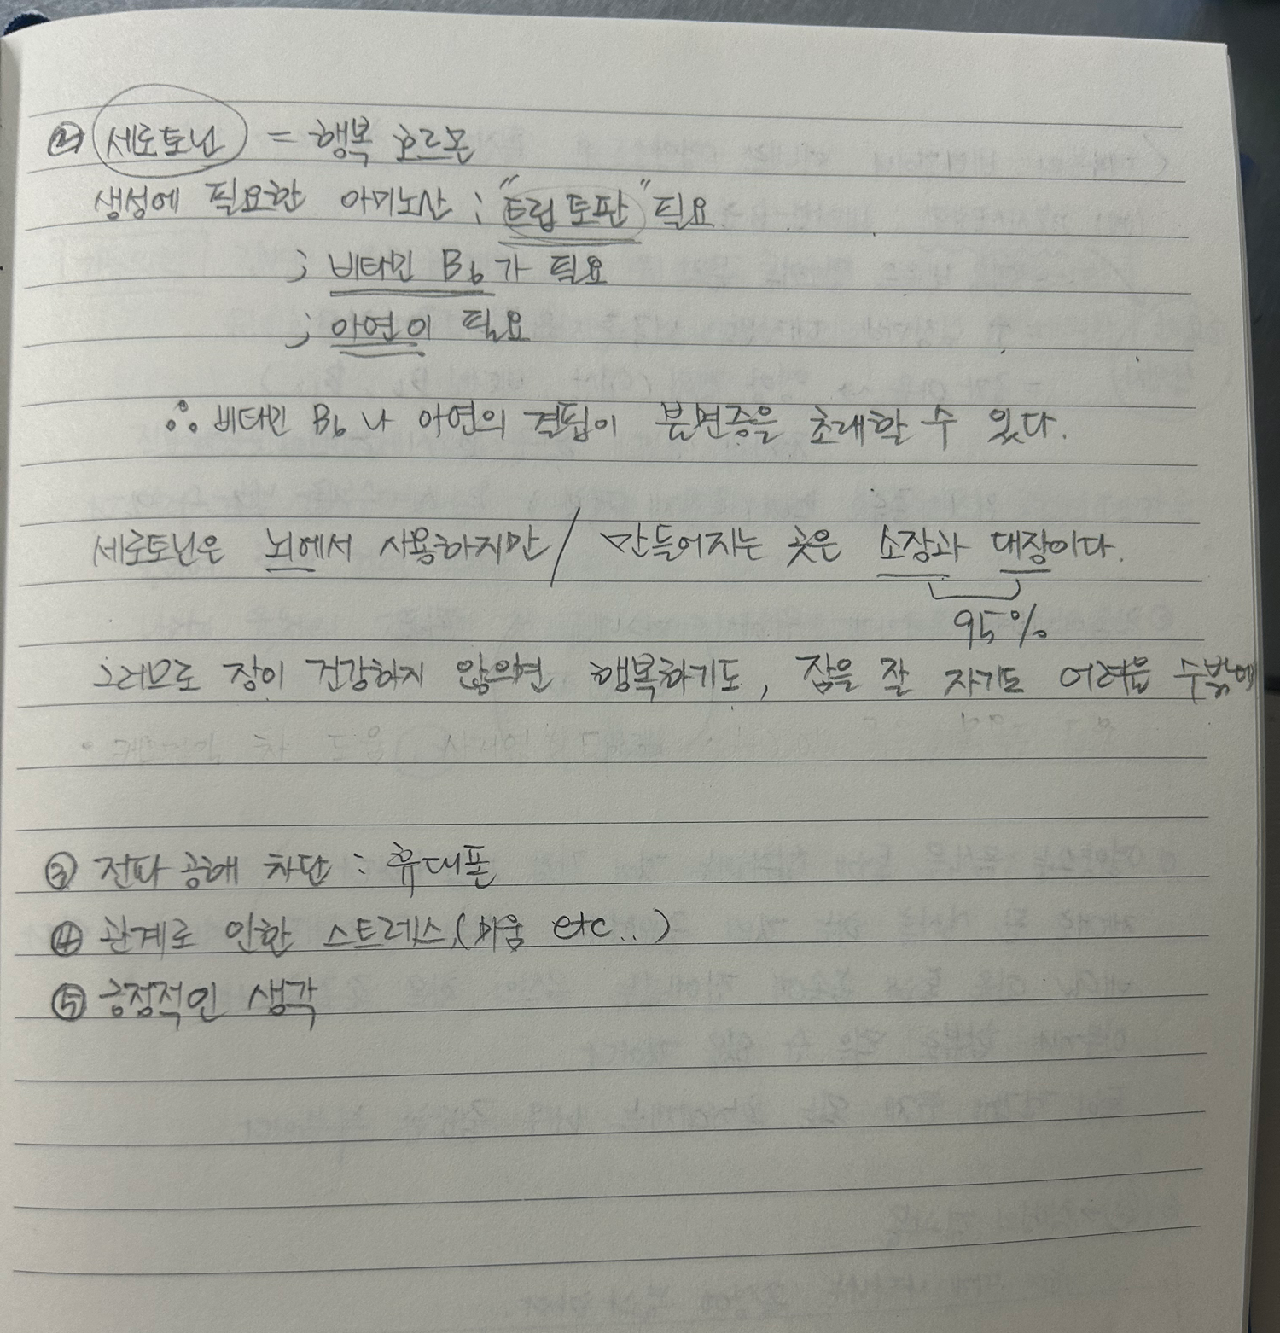 ② 세로토닌 = 행복 호르몬
생성에 필요한 아미노산 ; "트립토판" 필요
; 비타민 B6가 필요
; 아연이 필요
∴ 비타민 B6나 아연의 결핍이 불면증을 초래할 수 있다.
세로토닌은 뇌에서 사용하지만 / 만들어지는 곳은 소장과 대장이다.
95%
그러므로 장이 건강하지 않으면 행복하기도, 잠을 잘 자기도 어려울 수밖에
③ 전파 공해 차단 : 휴대폰
④ 관계로 인한 스트레스 (미움 etc..)
⑤ 긍정적인 생각